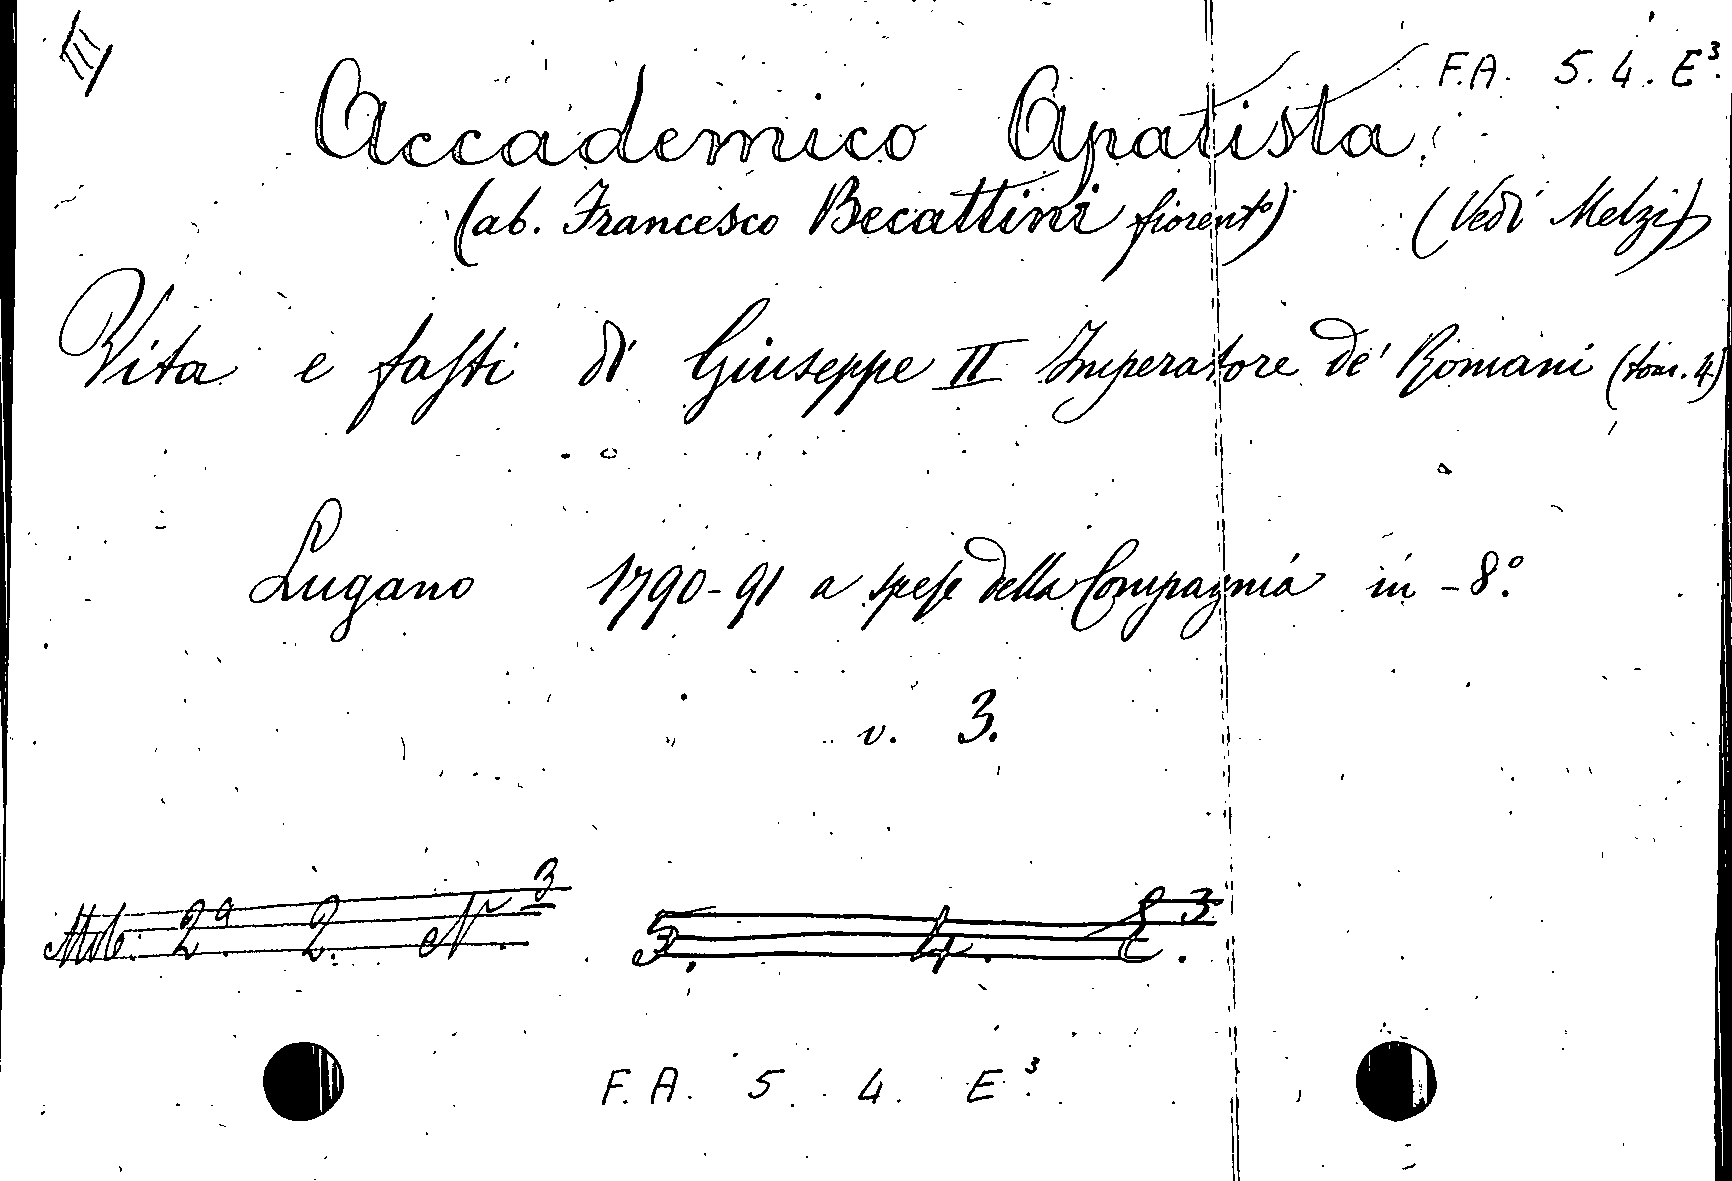 III
F.A. 5. 4. E³.
Accademico Apatista
(ab. Francesco Becattini fiorent°) (Vedi Melzi)
Vita e fasti di Giuseppe II Imperatore de' Romani (tom. 4)
Lugano 1790-91 a spese della Compagnia in-8.°
v. 3.
Mob. 2ª. 2. N.³ 5. 4. E.³
F.A. 5. 4. E³.